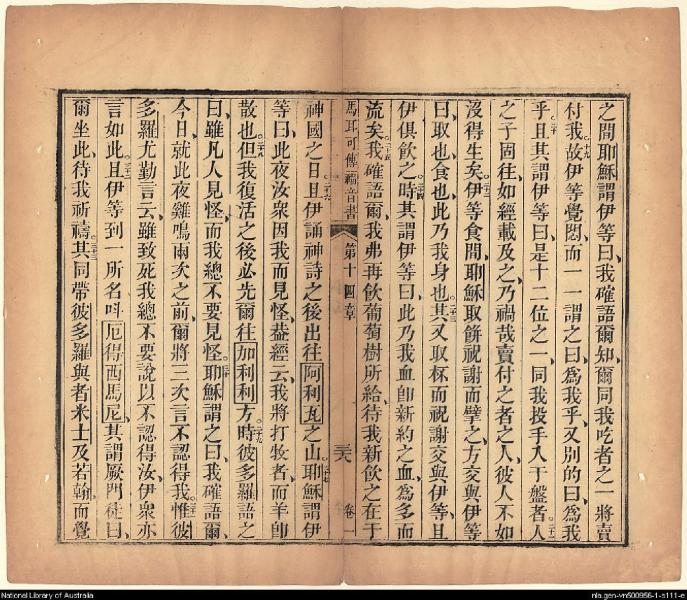 之間耶穌謂伊等曰我確語爾知爾同我吃者之一將賣
付我。十九故伊等覺悶而一一謂之曰爲我乎又別的曰爲我
乎。二十且其謂伊等曰是十二位之一同我投手入于盤者。二一人
之子固往如經載及之乃禍哉賣付之者之人彼人不如
沒得生矣。二二伊等食間耶穌取餅祝謝而擘之方交與伊等
曰取也食也此乃我身也。二三其又取杯而祝謝交與伊等且
伊俱飲之時。二四其謂伊等曰此乃我血卽新約之血爲多而
流矣。二五我確語爾我弗再飲葡萄樹所給待我新飲之在于
馬耳可傳福音書 第十四章 三六 卷一
神國之日。二六且伊誦神詩之後出往阿利瓦之山。二七耶穌謂伊
等曰此夜汝衆因我而見怪蓋經云我將打牧者而羊卽
散也。二八但我復活之後必先爾往加利利方。二九時彼多羅語之
曰雖凡人見怪而我總不要見怪。三十耶穌謂之曰我確語爾
今日就此夜雞鳴兩次之前爾將三次言不認得我。三一惟彼
多羅尤勤言云雖致死我總不要說以不認得汝伊衆亦
言如此。三二且伊等到一所名呌厄得西馬尼其謂厥門徒曰
爾坐此待我祈禱。三三其同帶彼多羅與者米士及若翰而覺
National Library of Australia
nla.gen-vn500956-1-s111-e